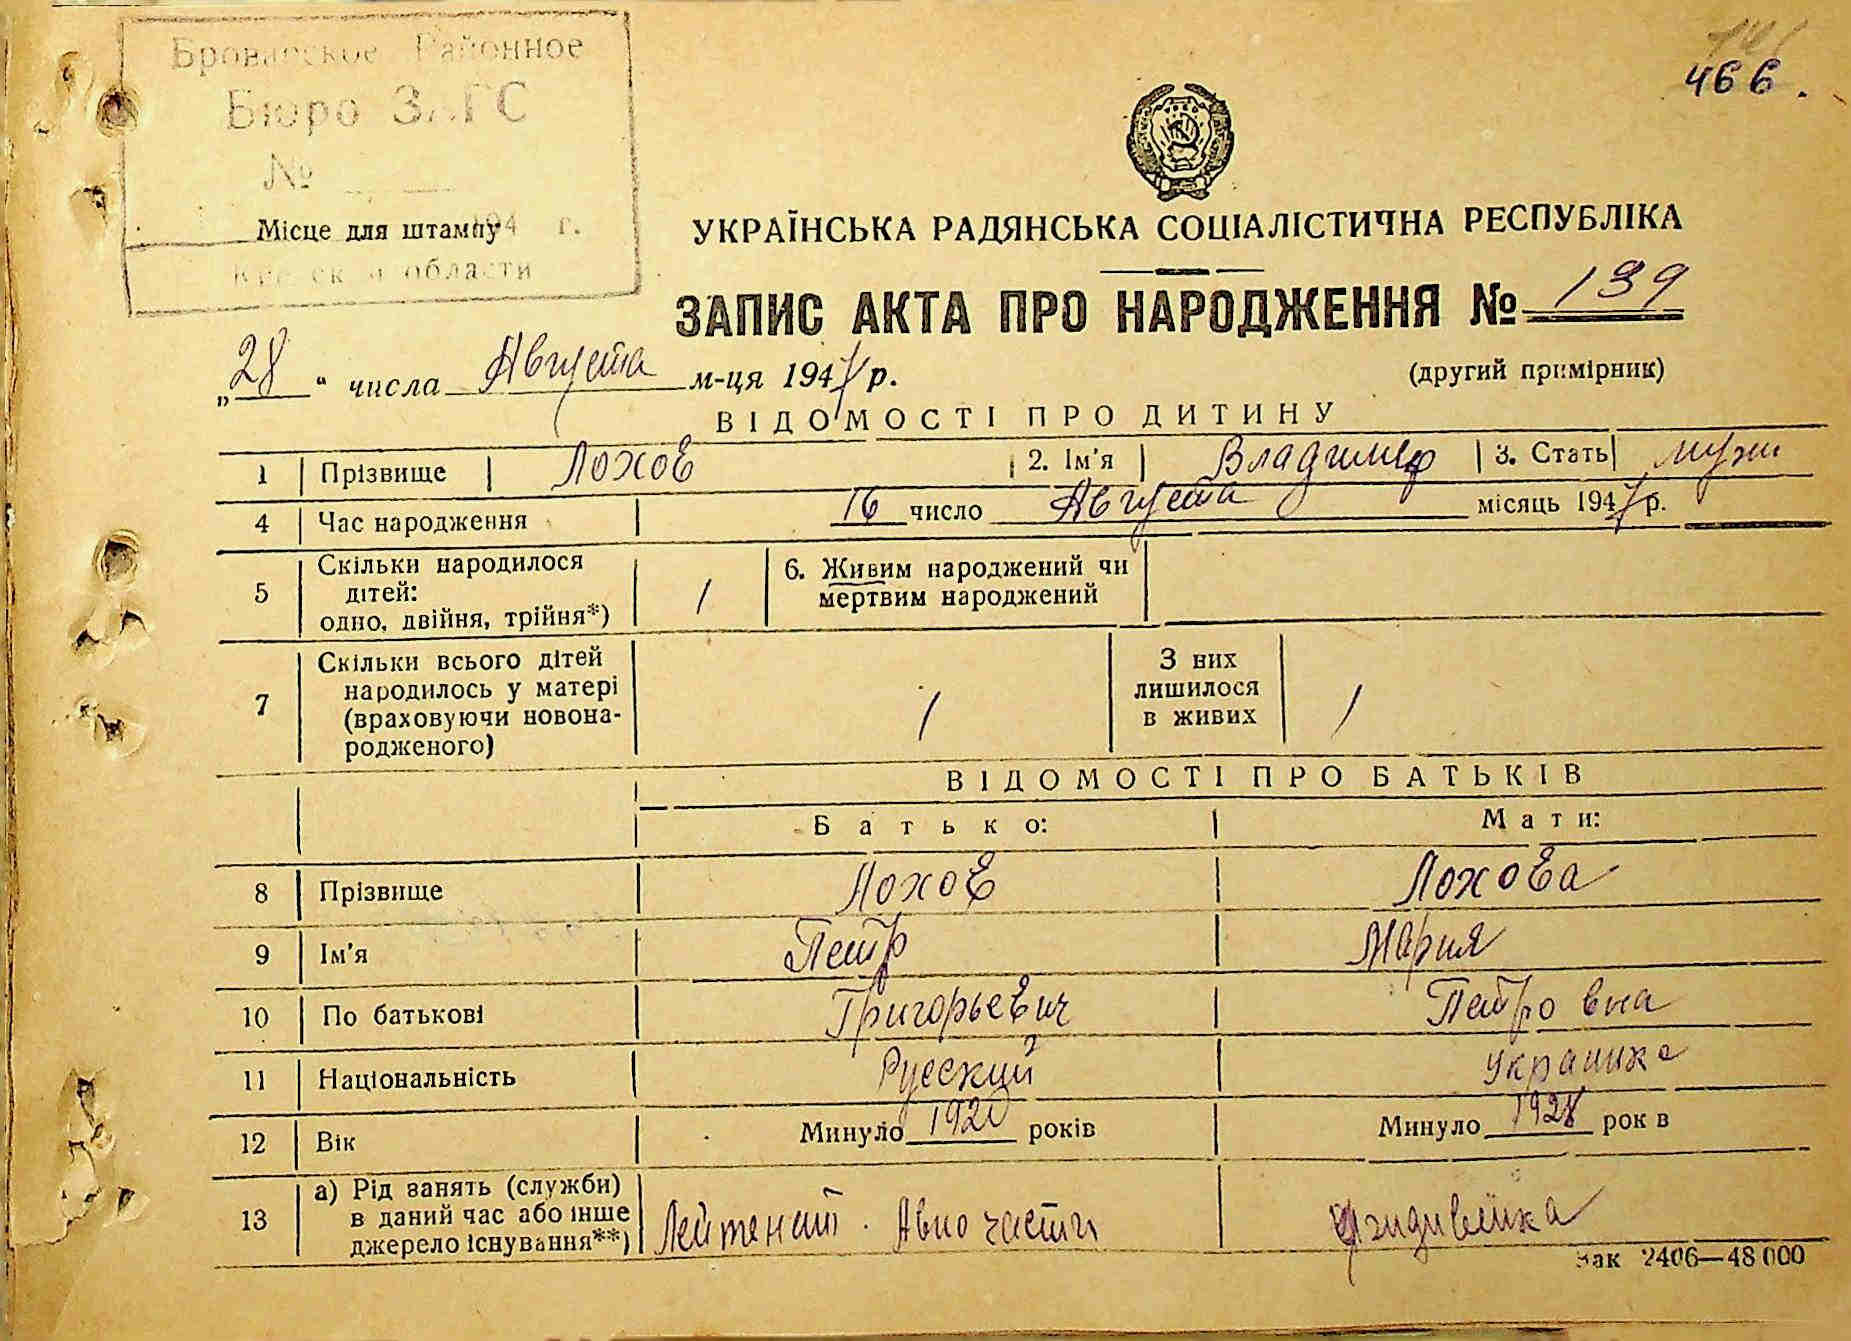 Броварское Районное
Бюро ЗАГС
№
466.
Місце для штампу 194 г.
Киевской области
УКРАЇНСЬКА РАДЯНСЬКА СОЦІАЛІСТИЧНА РЕСПУБЛІКА
ЗАПИС АКТА ПРО НАРОДЖЕННЯ № 139
„28“ числа Августа м-ця 1947 р.
(другий примірник)
ВІДОМОСТІ ПРО ДИТИНУ
1 Прізвище Лохов 2. Ім'я Владимир 3. Стать муж
4 Час народження 16 число Августа місяць 1947 р.
5 Скільки народилося дітей: одно, двійня, трійня*) 1 6. Живим народжений чи мертвим народжений
7 Скільки всього дітей народилось у матері (враховуючи новонародженого) 1 З них лишилося в живих 1
ВІДОМОСТІ ПРО БАТЬКІВ
Батько: Мати:
8 Прізвище Лохов Лохова
9 Ім'я Петр Мария
10 По батькові Григорьевич Петровна
11 Національність Русский Украинка
12 Вік Минуло 1920 років Минуло 1928 рок в
13 а) Рід занять (служби) в даний час або інше джерело існування**) Лейтенант. Авио части
Зак 2406—48 000